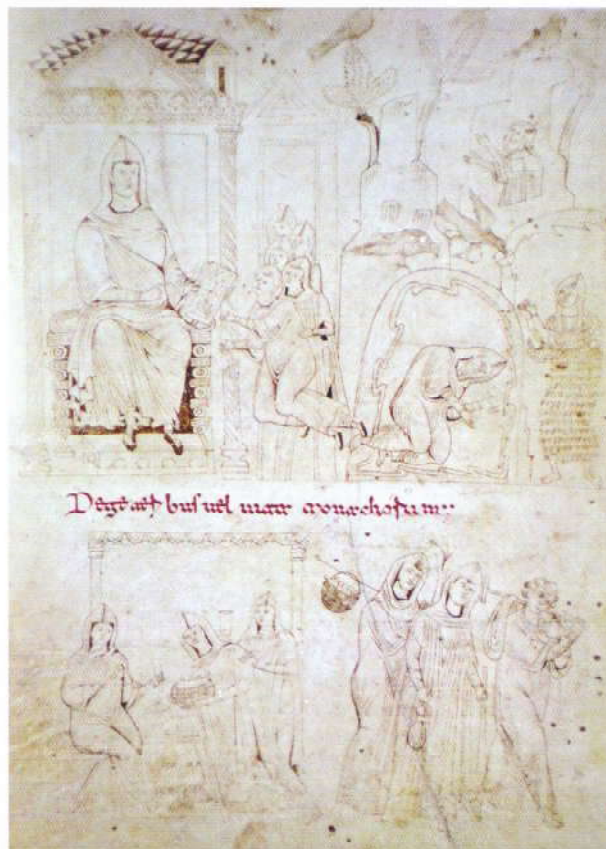 De generibus uel uita monachorum